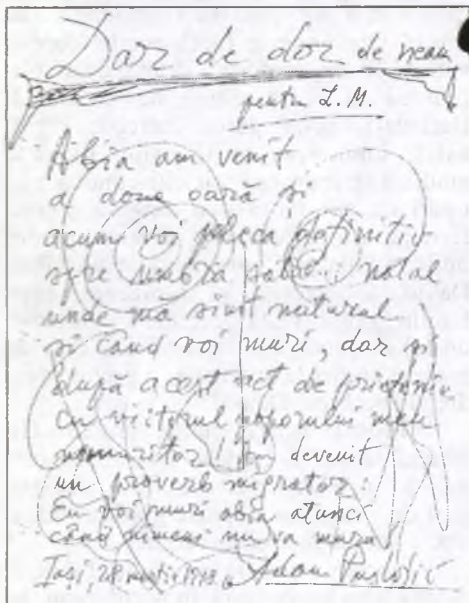 Dar de dor de neam
pentru L.M.
Abia am venit
a doua oară și
acum voi pleca definitiv
spre umbra satului natal
unde mă simt natural
și când voi muri, dar și
după acest act de prietenie
cu viitorul poporului meu
nemuritor! Am devenit
un proverb migrator:
Eu voi muri abia atunci
când nimeni nu va muri!
Iași, 28 martie
Adam Puslojić